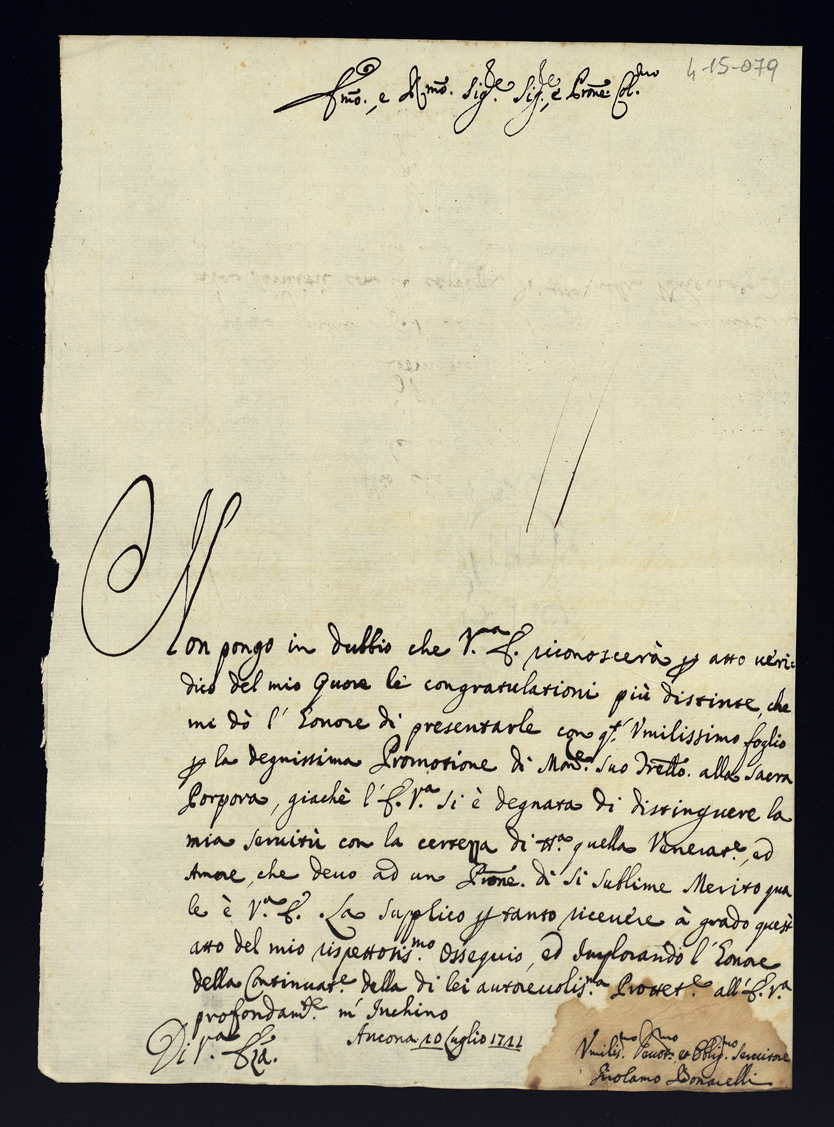 4-15-079
Emo., e Rmo. Sigre. Sigre., e Prone. Col.mo
Non pongo in dubbio che V.ra E. riconoscerà ꝑ atto veri-
dico del mio Quore le congratulationi più distinte, che
mi dò l' Eonore di presentarle con qt.o Vmilissimo foglio
ꝑ la degnissima Promotione di Monre. suo Frello. alla Sacra
Porpora, giachè l'E. V.ra si è degnata di distinguere la
mia seruitù con la certezza di tt.a quella Venerate., ed
Amore, che deuo ad un Prone. di si sublime Merito qua
le è V.ra E. La supplico ꝑ tanto riceuere à grado quest'
atto del mio rispettosis.mo Ossequio, ed Implorando l' Eonore
della Continuat.e della di lei autoreuolis.ma Protet.e all'E. V.ra
profondam.te m' Inchino
Di V.ra Eza.
Ancona 10 Luglio 1711
Vmilis.mo Deuot.mo et Oblig.mo Seruitore
Girolamo Bonarelli